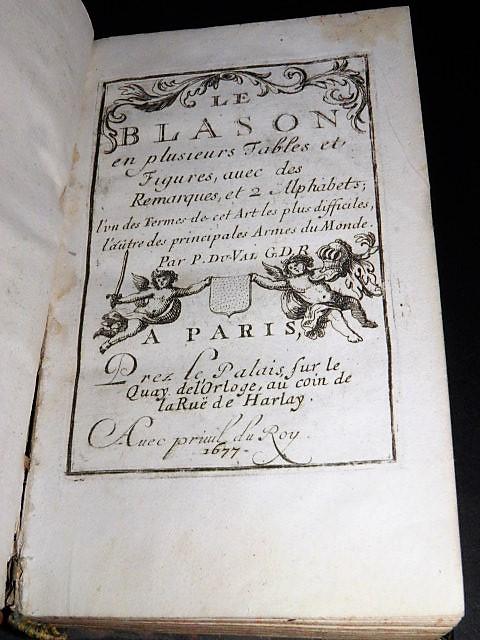 LE
BLASON
en plusieurs Tables et
Figures, auec des
Remarques, et 2 Alphabets;
l'vn des Termes de cet Art les plus difficiles,
l'autre des principales Armes du Monde.
Par P. DU-VAL G.D.R.
A PARIS,
Prez le Palais, sur le
Quay de l'Orloge, au coin de
la Ruë de Harlay.
Auec priuil. du Roy.
1677.